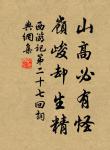 山高必有怪
嶺峻却生精
西游記第二十七回詞
典網集